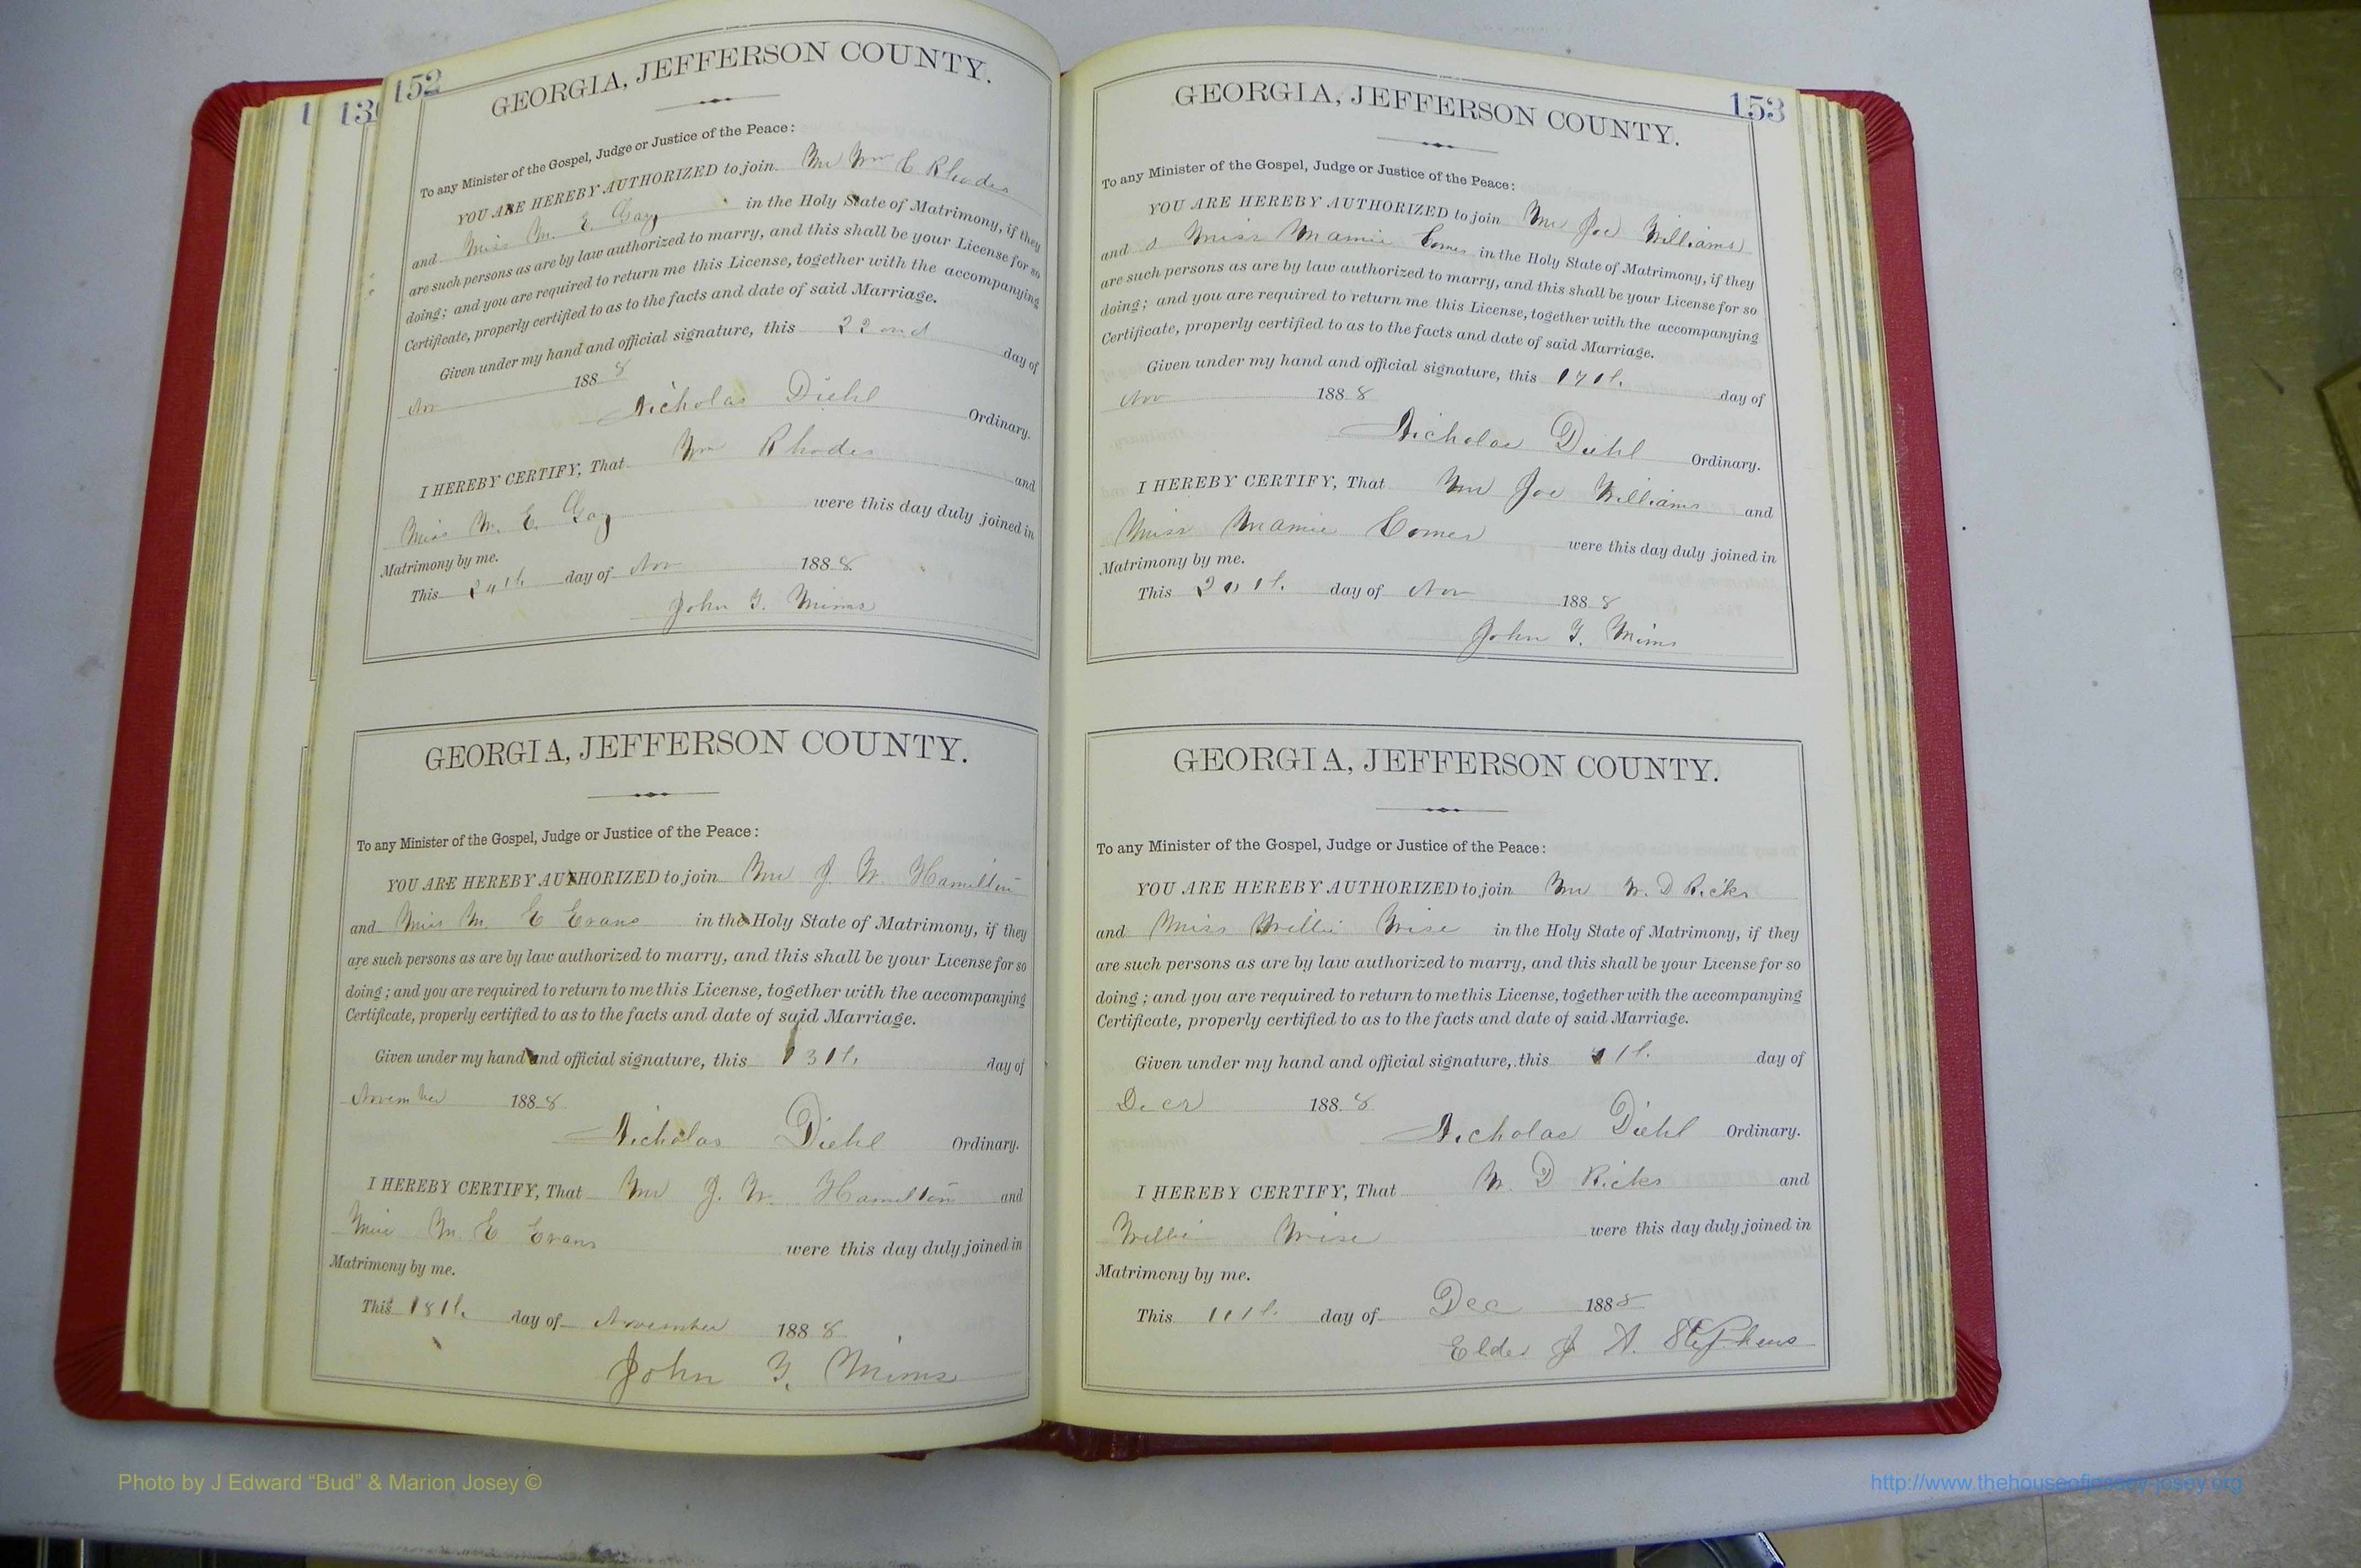 152
GEORGIA, JEFFERSON COUNTY.
To any Minister of the Gospel, Judge or Justice of the Peace:
YOU ARE HEREBY AUTHORIZED to join Mr Wm C Rhodes
and Miss M. E. Gay in the Holy State of Matrimony, if they
are such persons as are by law authorized to marry, and this shall be your License for so
doing; and you are required to return me this License, together with the accompanying
Certificate, properly certified to as to the facts and date of said Marriage.
Given under my hand and official signature, this 22nd day of
Nov 1888
Nicholas Diehl Ordinary.
I HEREBY CERTIFY, That Wm Rhodes and
Miss M. E. Gay were this day duly joined in
Matrimony by me.
This day of Nov 1888
John G. Mims
GEORGIA, JEFFERSON COUNTY.
To any Minister of the Gospel, Judge or Justice of the Peace:
YOU ARE HEREBY AUTHORIZED to join Mr J. W. Hamilton
and Miss M. E Evans in the Holy State of Matrimony, if they
are such persons as are by law authorized to marry, and this shall be your License for so
doing; and you are required to return to me this License, together with the accompanying
Certificate, properly certified to as to the facts and date of said Marriage.
Given under my hand and official signature, this 13th day of
November 1888
Nicholas Diehl Ordinary.
I HEREBY CERTIFY, That Mr J. W. Hamilton and
Miss M. E Evans were this day duly joined in
Matrimony by me.
This 18th day of November 1888
John G. Mims
153
GEORGIA, JEFFERSON COUNTY.
To any Minister of the Gospel, Judge or Justice of the Peace:
YOU ARE HEREBY AUTHORIZED to join Mr Joe Williams
and Miss Mamie Comer in the Holy State of Matrimony, if they
are such persons as are by law authorized to marry, and this shall be your License for so
doing; and you are required to return me this License, together with the accompanying
Certificate, properly certified to as to the facts and date of said Marriage.
Given under my hand and official signature, this 17th day of
Nov 1888
Nicholas Diehl Ordinary.
I HEREBY CERTIFY, That Mr Joe Williams and
Miss Mamie Comer were this day duly joined in
Matrimony by me.
This 20th day of Nov 1888
John G. Mims
GEORGIA, JEFFERSON COUNTY.
To any Minister of the Gospel, Judge or Justice of the Peace:
YOU ARE HEREBY AUTHORIZED to join Mr W. D Ricks
and Miss Willie Wise in the Holy State of Matrimony, if they
are such persons as are by law authorized to marry, and this shall be your License for so
doing; and you are required to return to me this License, together with the accompanying
Certificate, properly certified to as to the facts and date of said Marriage.
Given under my hand and official signature, this day of
Decr 1888
Nicholas Diehl Ordinary.
I HEREBY CERTIFY, That W. D Ricks and
Willie Wise were this day duly joined in
Matrimony by me.
This 11th day of Dec 1888
Elder J A. Stephens
Photo by J Edward “Bud” & Marion Josey ©
http://www.thehouseofjossey-josey.org